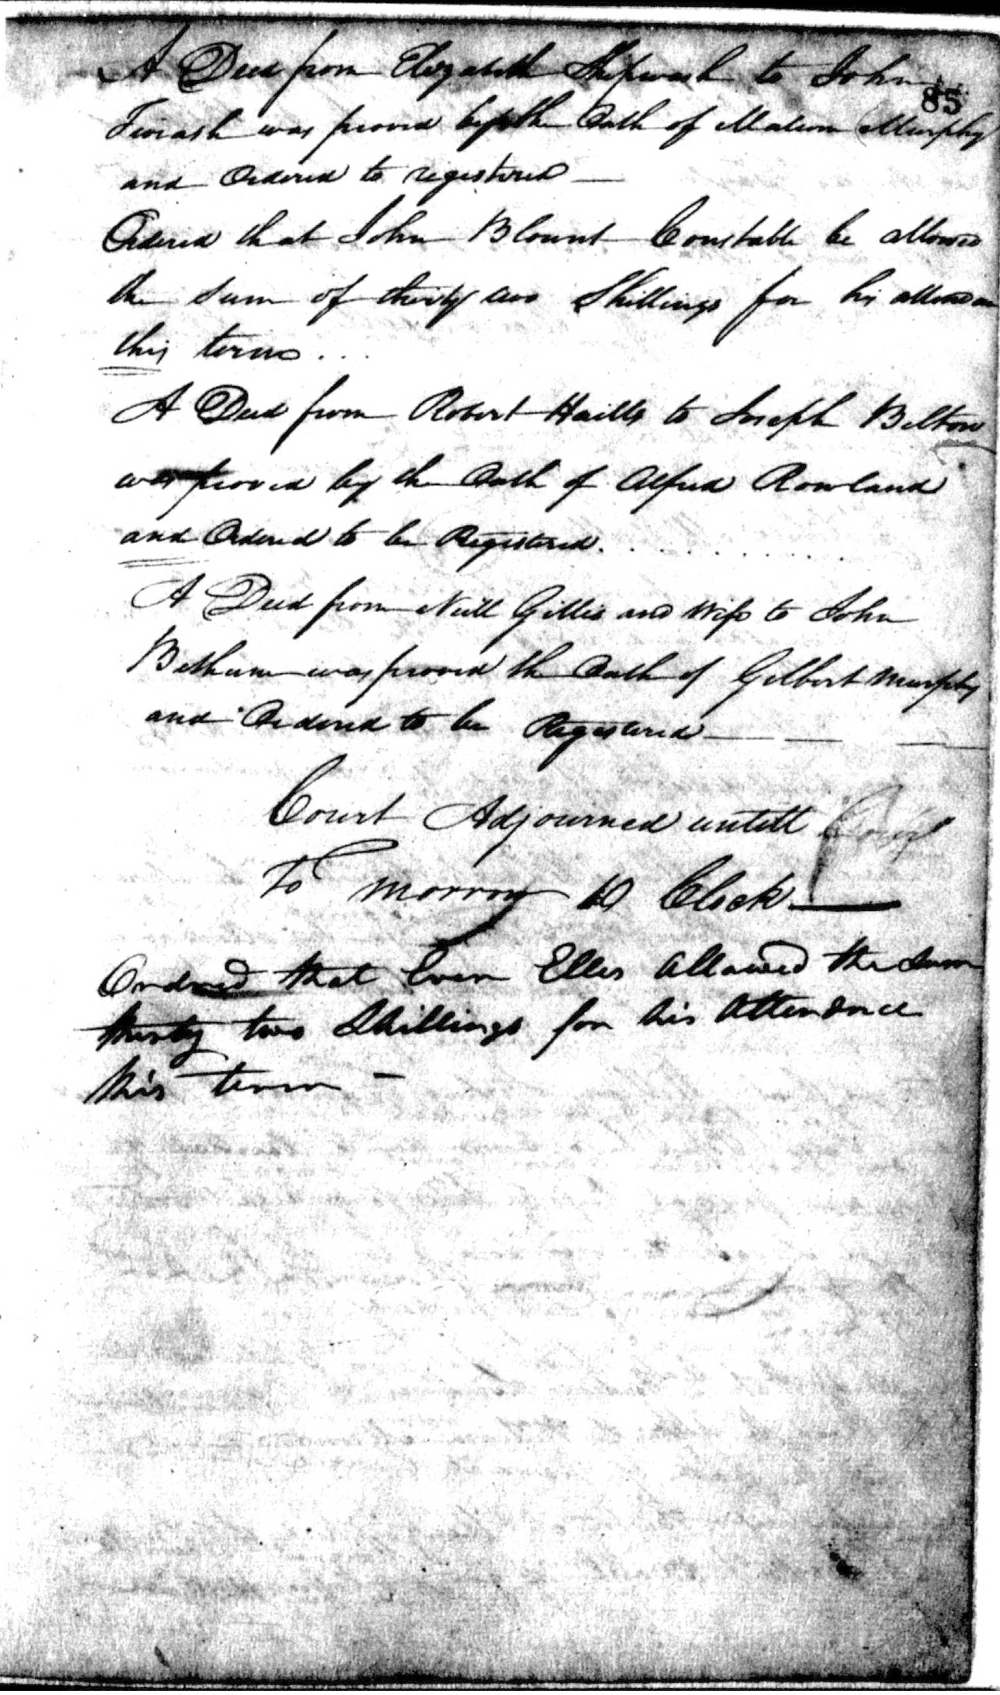 85
A Deed from Elizabeth Skipwash to John
was proved by the Oath of Murphy
and Ordered to registered
Ordered that John Blount Constable be allowed
the Sum of thirty two Shillings for his attendan
this term . . .
A Deed from Robert Haills to Joseph Belton
was proved by the Oath of Alfred Rowland
and Ordered to be Registered. . . . . . . . . .
A Deed from Neill Gillis and Wife to John
Bethune was proved the Oath of Gilbert Murphy
and Ordered to be Registered
Court Adjourned untill
To morrow 10 Clock
Ordered that Even Elles Allowed the Sum
thirty two Shillings for his Attendnce
this term -